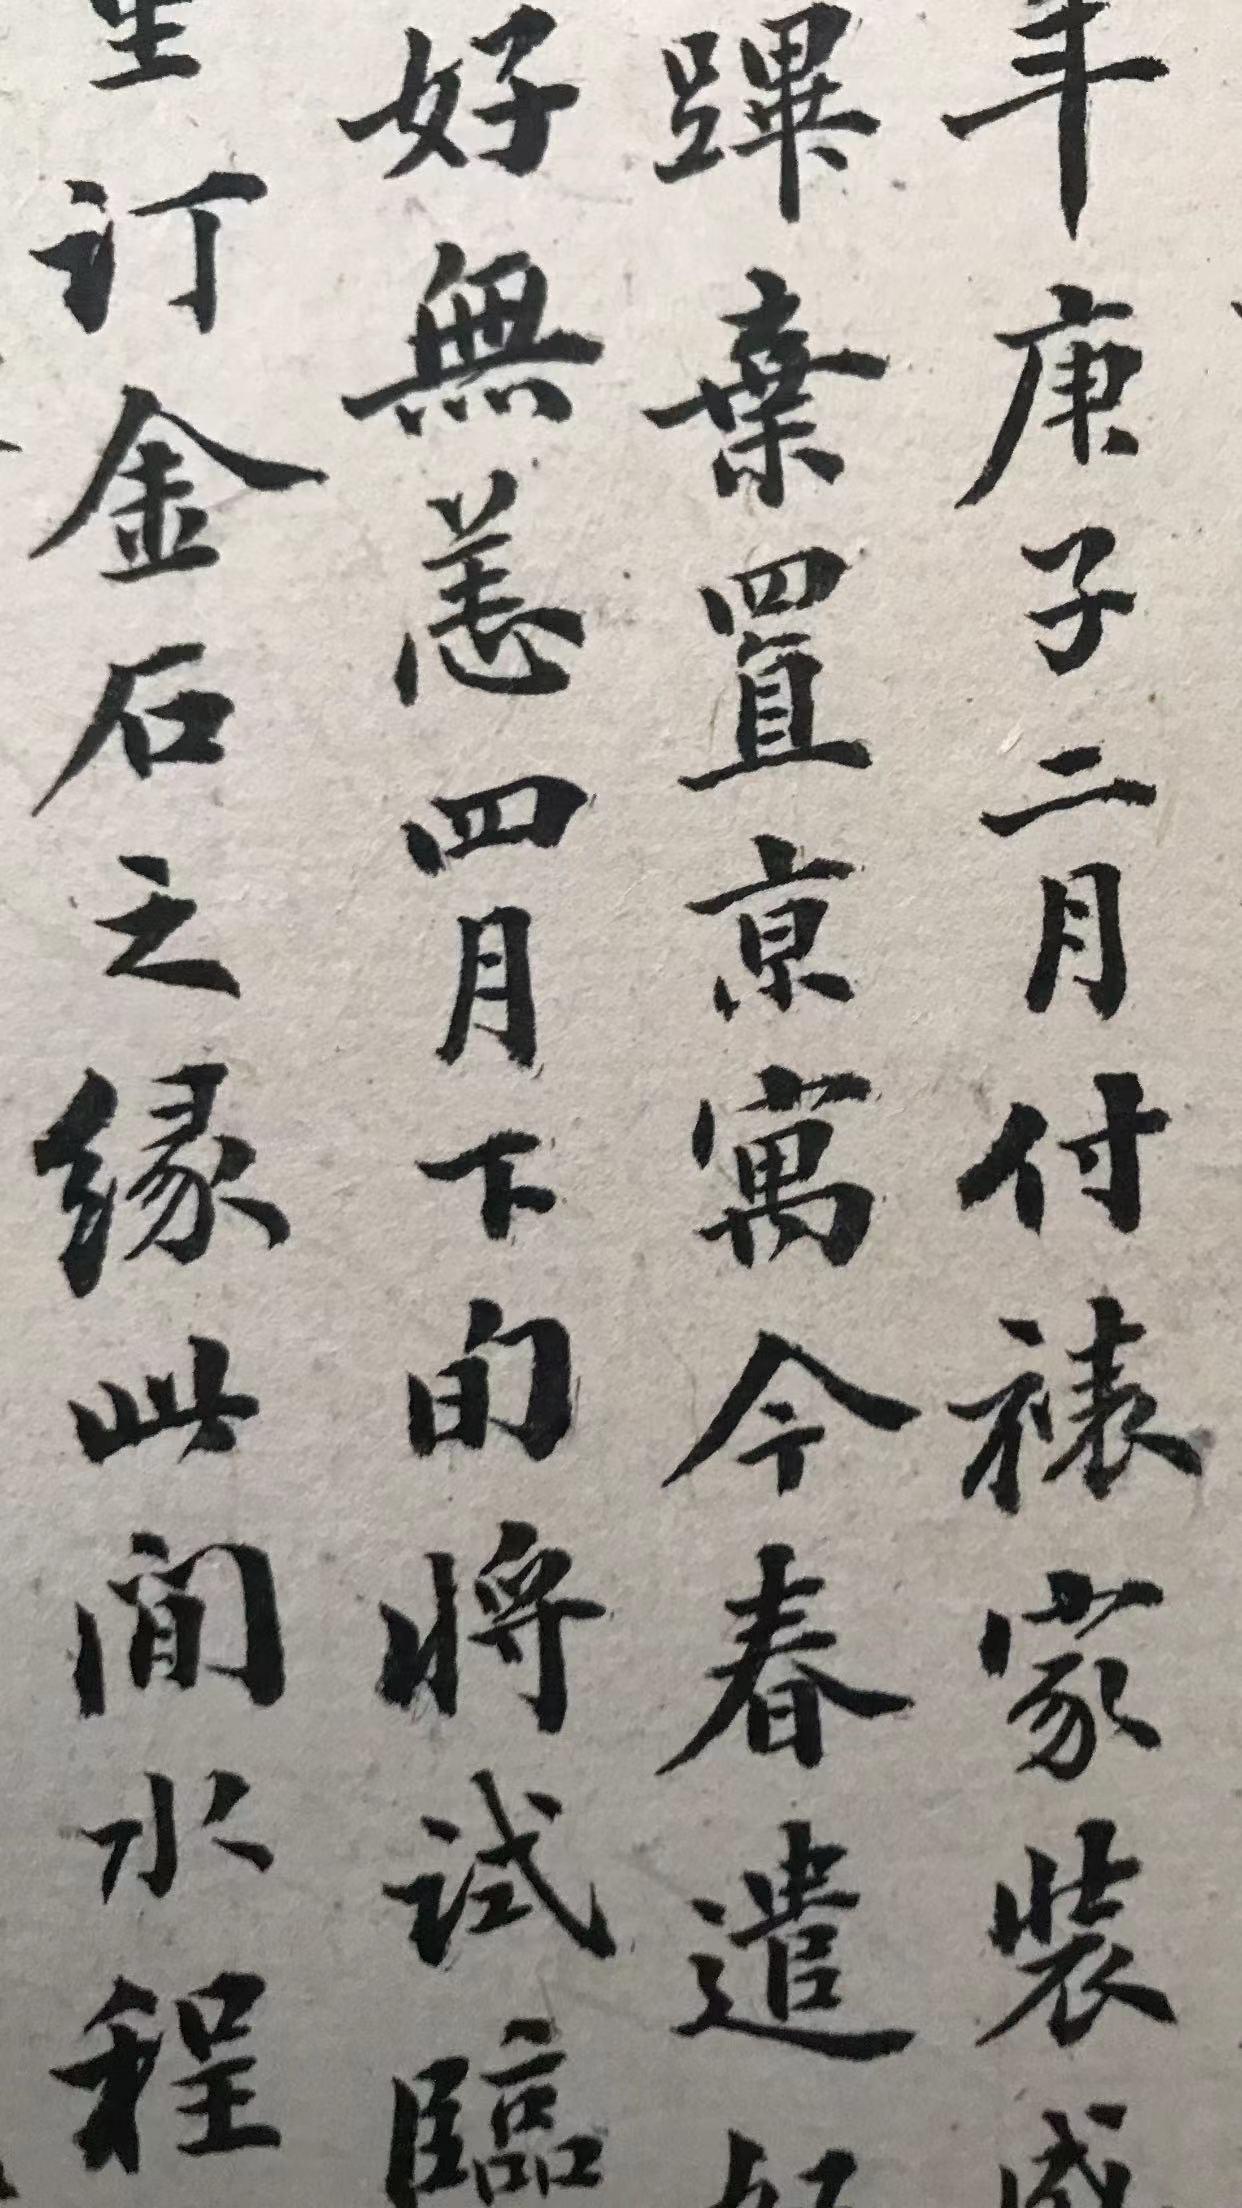 年庚子二月付裱家裝成
蹕棄置京寓今春遣
好無恙四月下旬將試臨
訂金石之緣此間水程